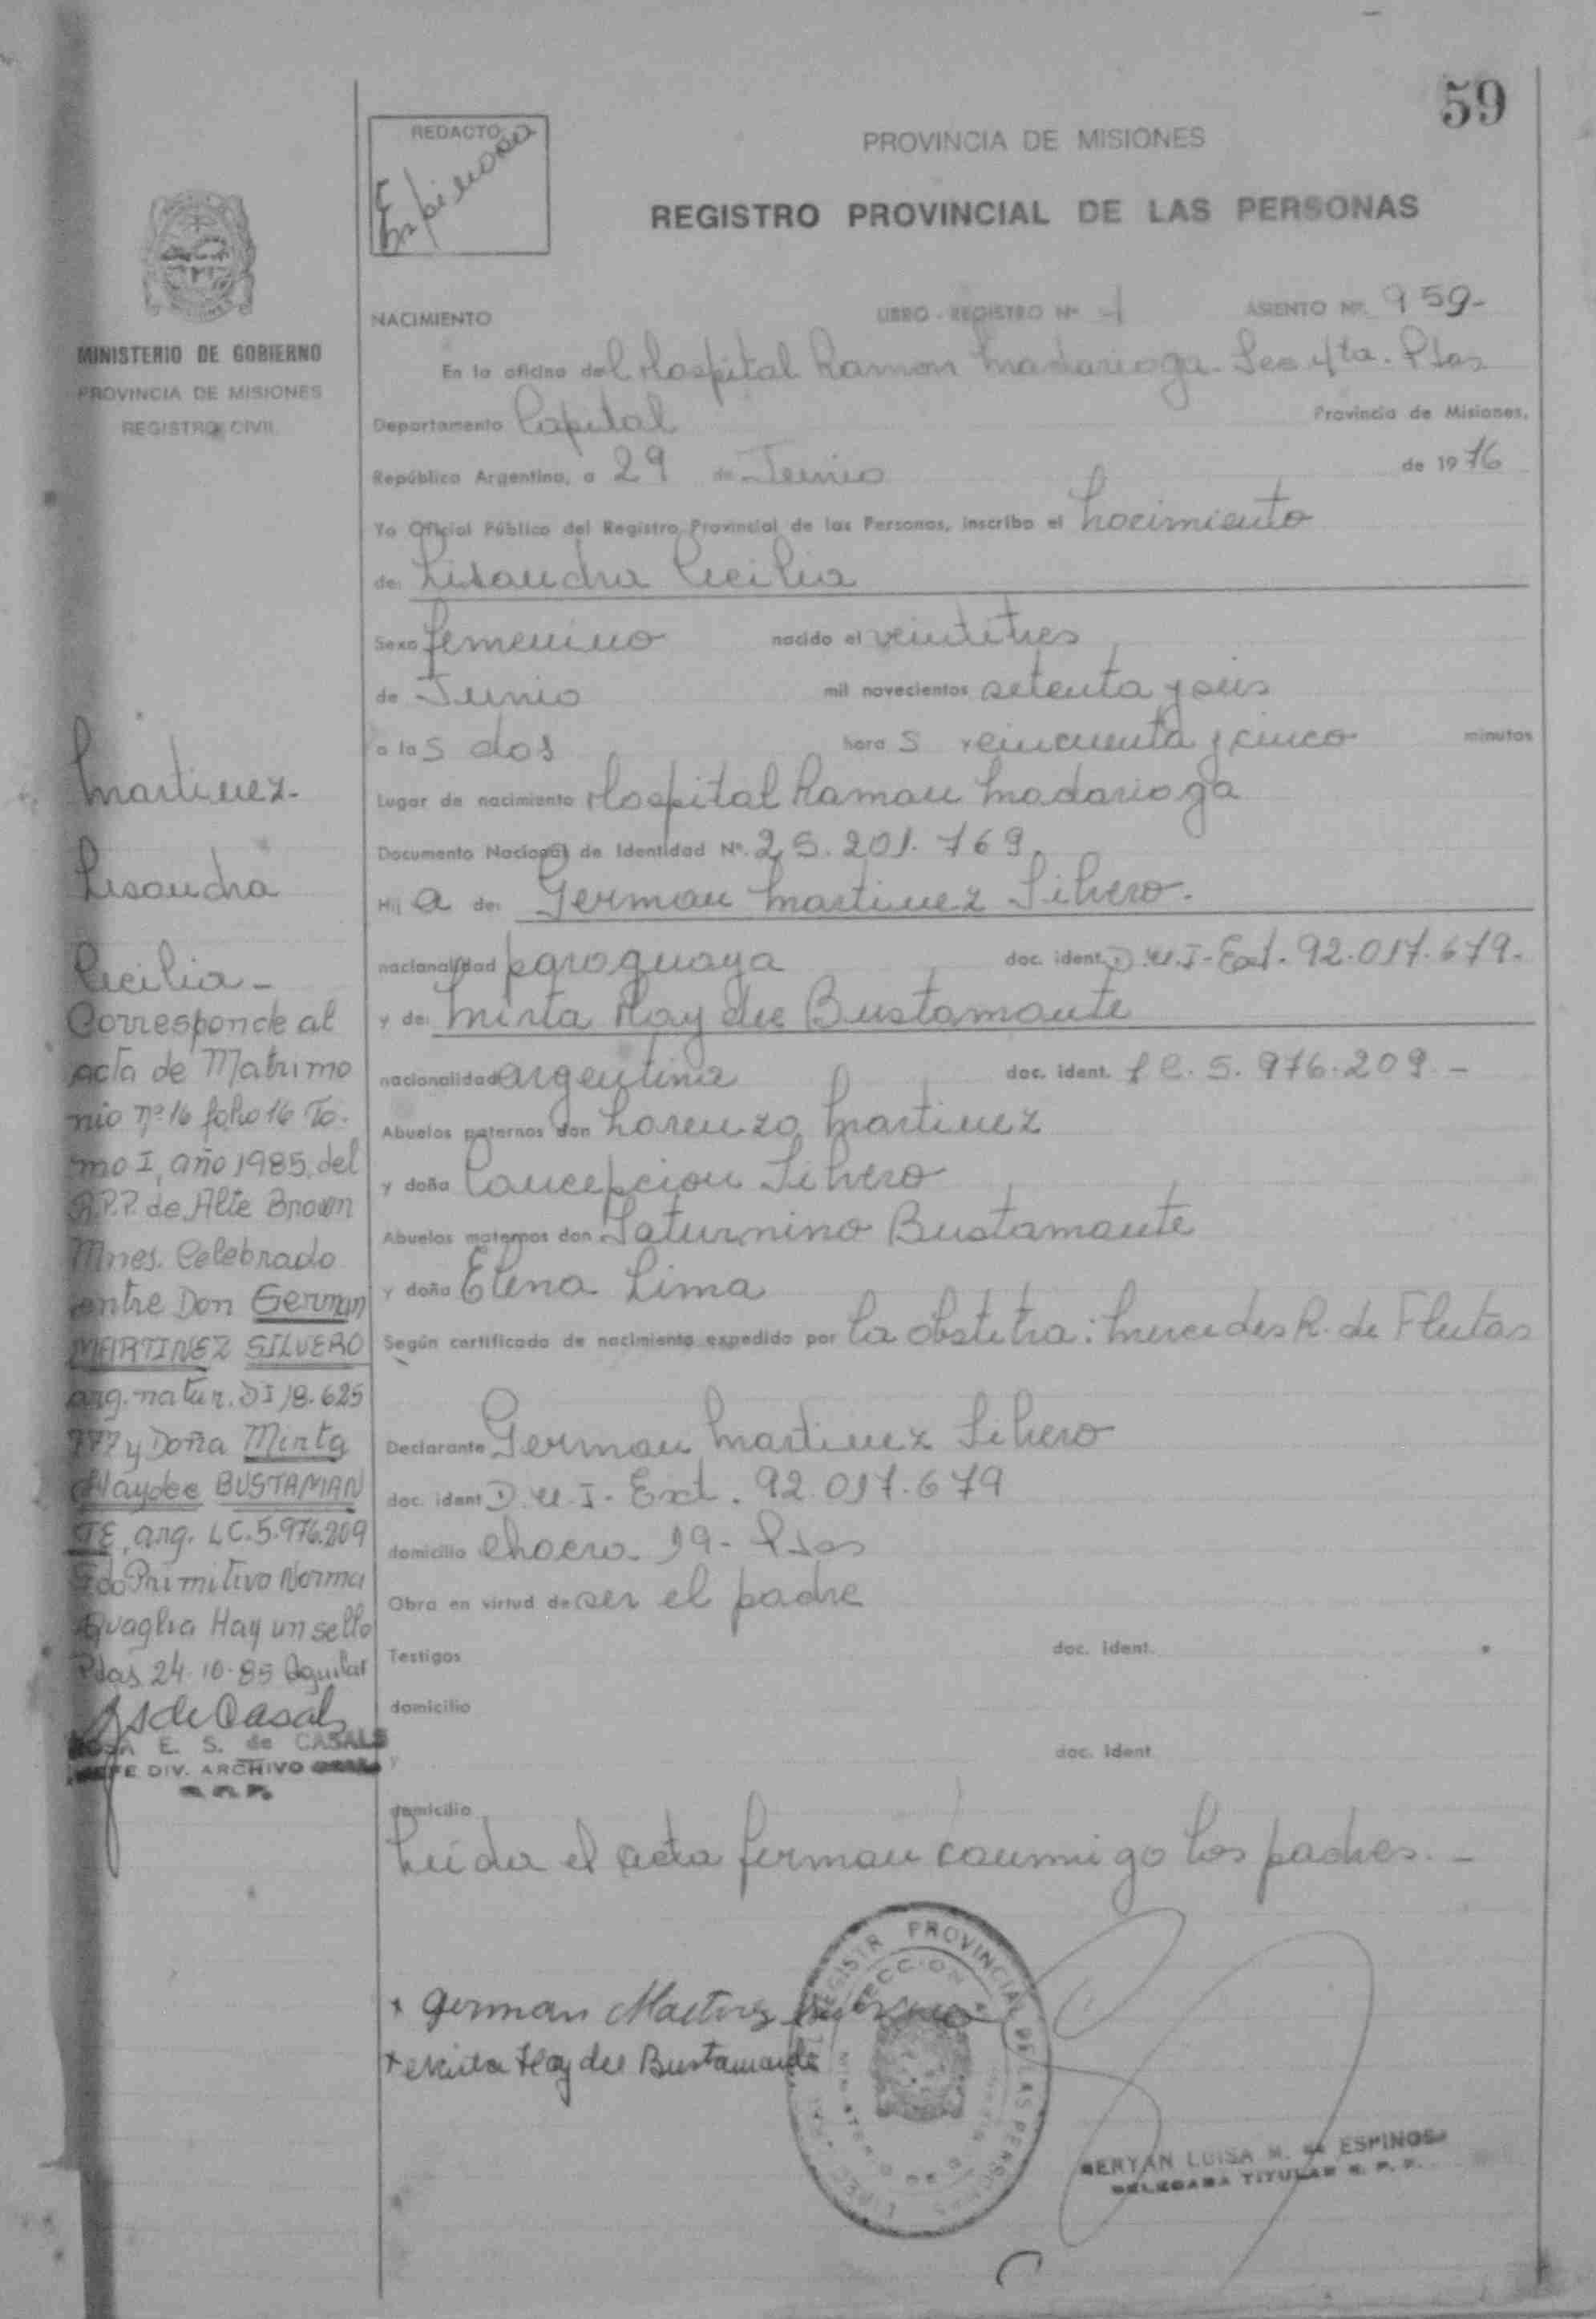 59
REDACTO
Espinosa
PROVINCIA DE MISIONES
REGISTRO PROVINCIAL DE LAS PERSONAS
MINISTERIO DE GOBIERNO
PROVINCIA DE MISIONES
REGISTRO CIVIL
NACIMIENTO LIBRO - REGISTRO Nº 4 ASIENTO Nº 959-
En la oficina del Hospital Ramon Madariaga - Sec 4ta. Pdas
Departamento Capital Provincia de Misiones,
República Argentina, a 29 de Junio de 1976
Yo Oficial Público del Registro Provincial de las Personas, inscribo el nacimiento
de: Lisandra Cecilia
Sexo femenino nacido el veintitres
de Junio mil novecientos setenta y seis
a las dos horas y cincuenta y cinco minutos
Lugar de nacimiento Hospital Ramon Madariaga
Documento Nacional de Identidad Nº. 25.201.769.
Hija de: German Martinez Silvero.
nacionalidad paraguaya doc. ident. D.U.I-Ext. 92.017.679.
y de: Mirta Haydee Bustamante
nacionalidad argentina doc. ident. L C. 5.976.209 -
Abuelos paternos don Lorenzo Martinez
y doña Concepcion Silvero
Abuelos maternos don Saturnino Bustamante
y doña Elena Lima
Según certificado de nacimiento expedido por la obstetra: Mercedes R. de Fleitas
Declarante German Martinez Silvero
doc. ident D.U.I- Ext. 92.017.679
domicilio chacra 19- Pdas
Obra en virtud de ser el padre
Testigos doc. ident.
domicilio
y doc. ident
domicilio
Leida el acta firman conmigo los padres. -
Martinez-
Lisandra
Cecilia -
Corresponde al
acta de Matrimo
nio nº 16 folio 16 To-
mo I, año 1985, del
R.P.P. de Alte Brown
Mnes. Celebrado
entre Don German
MARTINEZ SILVERO
arg. natur. DI 18.625
777 y Doña Mirta
Haydee BUSTAMAN
TE, arg. LC. 5.976.209
Fdo Primitivo Norma
Quaglia Hay un sello
Pdas 24-10-85 Aguilar
S de Casals
ROSA E. S. de CASALS
JEFE DIV. ARCHIVO GRAL
R. P. P.
x German Martinez Silvero
x Mirta Haydee Bustamante
REGISTRO PROVINCIAL DE LAS PERSONAS
SECCION
MINISTERIO DE
LUISA M. de ESPINOSA
DELEGADA TITULAR R. P. P.